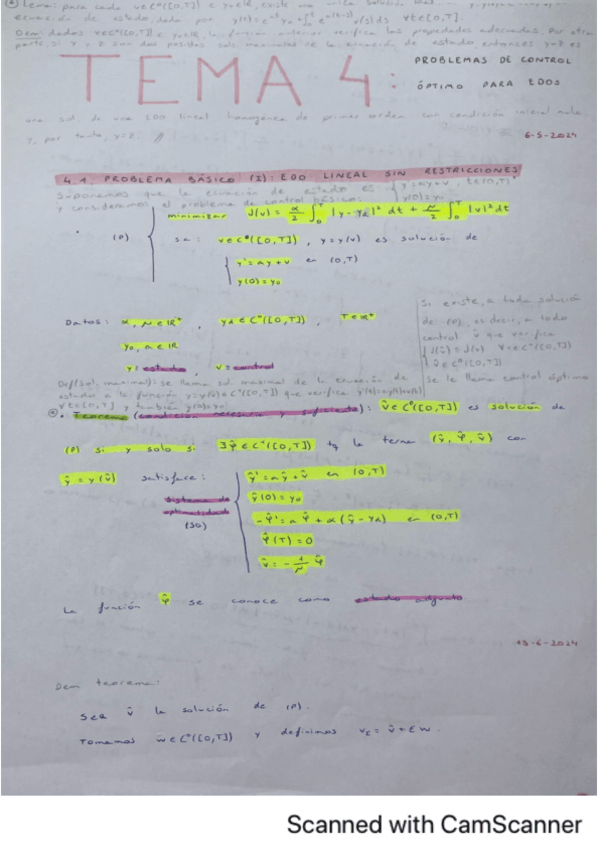 Lema: para cada v∈C⁰([0,T]) e y₀∈ℝ, existe una única solución
ecuación de estado, dada por y(t)=e^{at}y₀+∫₀ᵗ e^{a(t-s)}v(s)ds ∀t∈[0,T].
Dem: dados v∈C⁰([0,T]) e y₀∈ℝ, la función anterior verifica las propiedades adecuadas. Por otra
parte, si y, z son dos posibles sols. maximales de la ecuación de estado, entonces y-z es
TEMA 4:
PROBLEMAS DE CONTROL
ÓPTIMO PARA EDOS
una sol. de una EDO lineal homogénea de primer orden con condición inicial nula
y, por tanto, y=z. //
6-5-2024
4.1. PROBLEMA BÁSICO (I): EDO LINEAL SIN RESTRICCIONES
Suponemos que la ecuación de estado es { y'=ay+v, t∈(0,T)
y consideramos el problema de control básico: y(0)=y₀
(P) minimizar J(v) = α/2 ∫₀ᵀ |y-y_d|² dt + μ/2 ∫₀ᵀ |v|² dt
s.a: v∈C⁰([0,T]), y=y(v) es solución de
y'=ay+v en (0,T)
y(0)=y₀
Datos: α, μ∈ℝ⁺, y_d∈C⁰([0,T]), T∈ℝ⁺
y₀, a∈ℝ
y: estado, v: control
Si existe, a toda solución
de (P), es decir, a todo
control v̂ que verifica
J(v̂)≤J(v) ∀v∈C⁰([0,T])
v̂∈C⁰([0,T])
se le llama control óptimo
Def(Sol. maximal): se llama sol. maximal de la ecuación de
estado a la función y=y(t)∈C¹([0,T]) que verifica y'(t)=ay(t)+v(t)
∀t∈[0,T] y también y(0)=y₀
Teorema (condición necesaria y suficiente): v̂∈C⁰([0,T]) es solución de
(P) si y solo si ∃φ̂∈C¹([0,T]) tq la terna (ŷ, φ̂, v̂) con
ŷ=y(v̂) satisface:
sistema de
optimalidad
(SO)
ŷ'=aŷ+v̂ en (0,T)
ŷ(0)=y₀
-φ̂'=aφ̂+α(ŷ-y_d) en (0,T)
φ̂(T)=0
v̂=-1/μ φ̂
La función φ̂ se conoce como estado adjunto
13-6-2024
Dem teorema:
Sea v̂ la solución de (P).
Tomamos w∈C⁰([0,T]) y definimos v_ε=v̂+εw.
Scanned with CamScanner